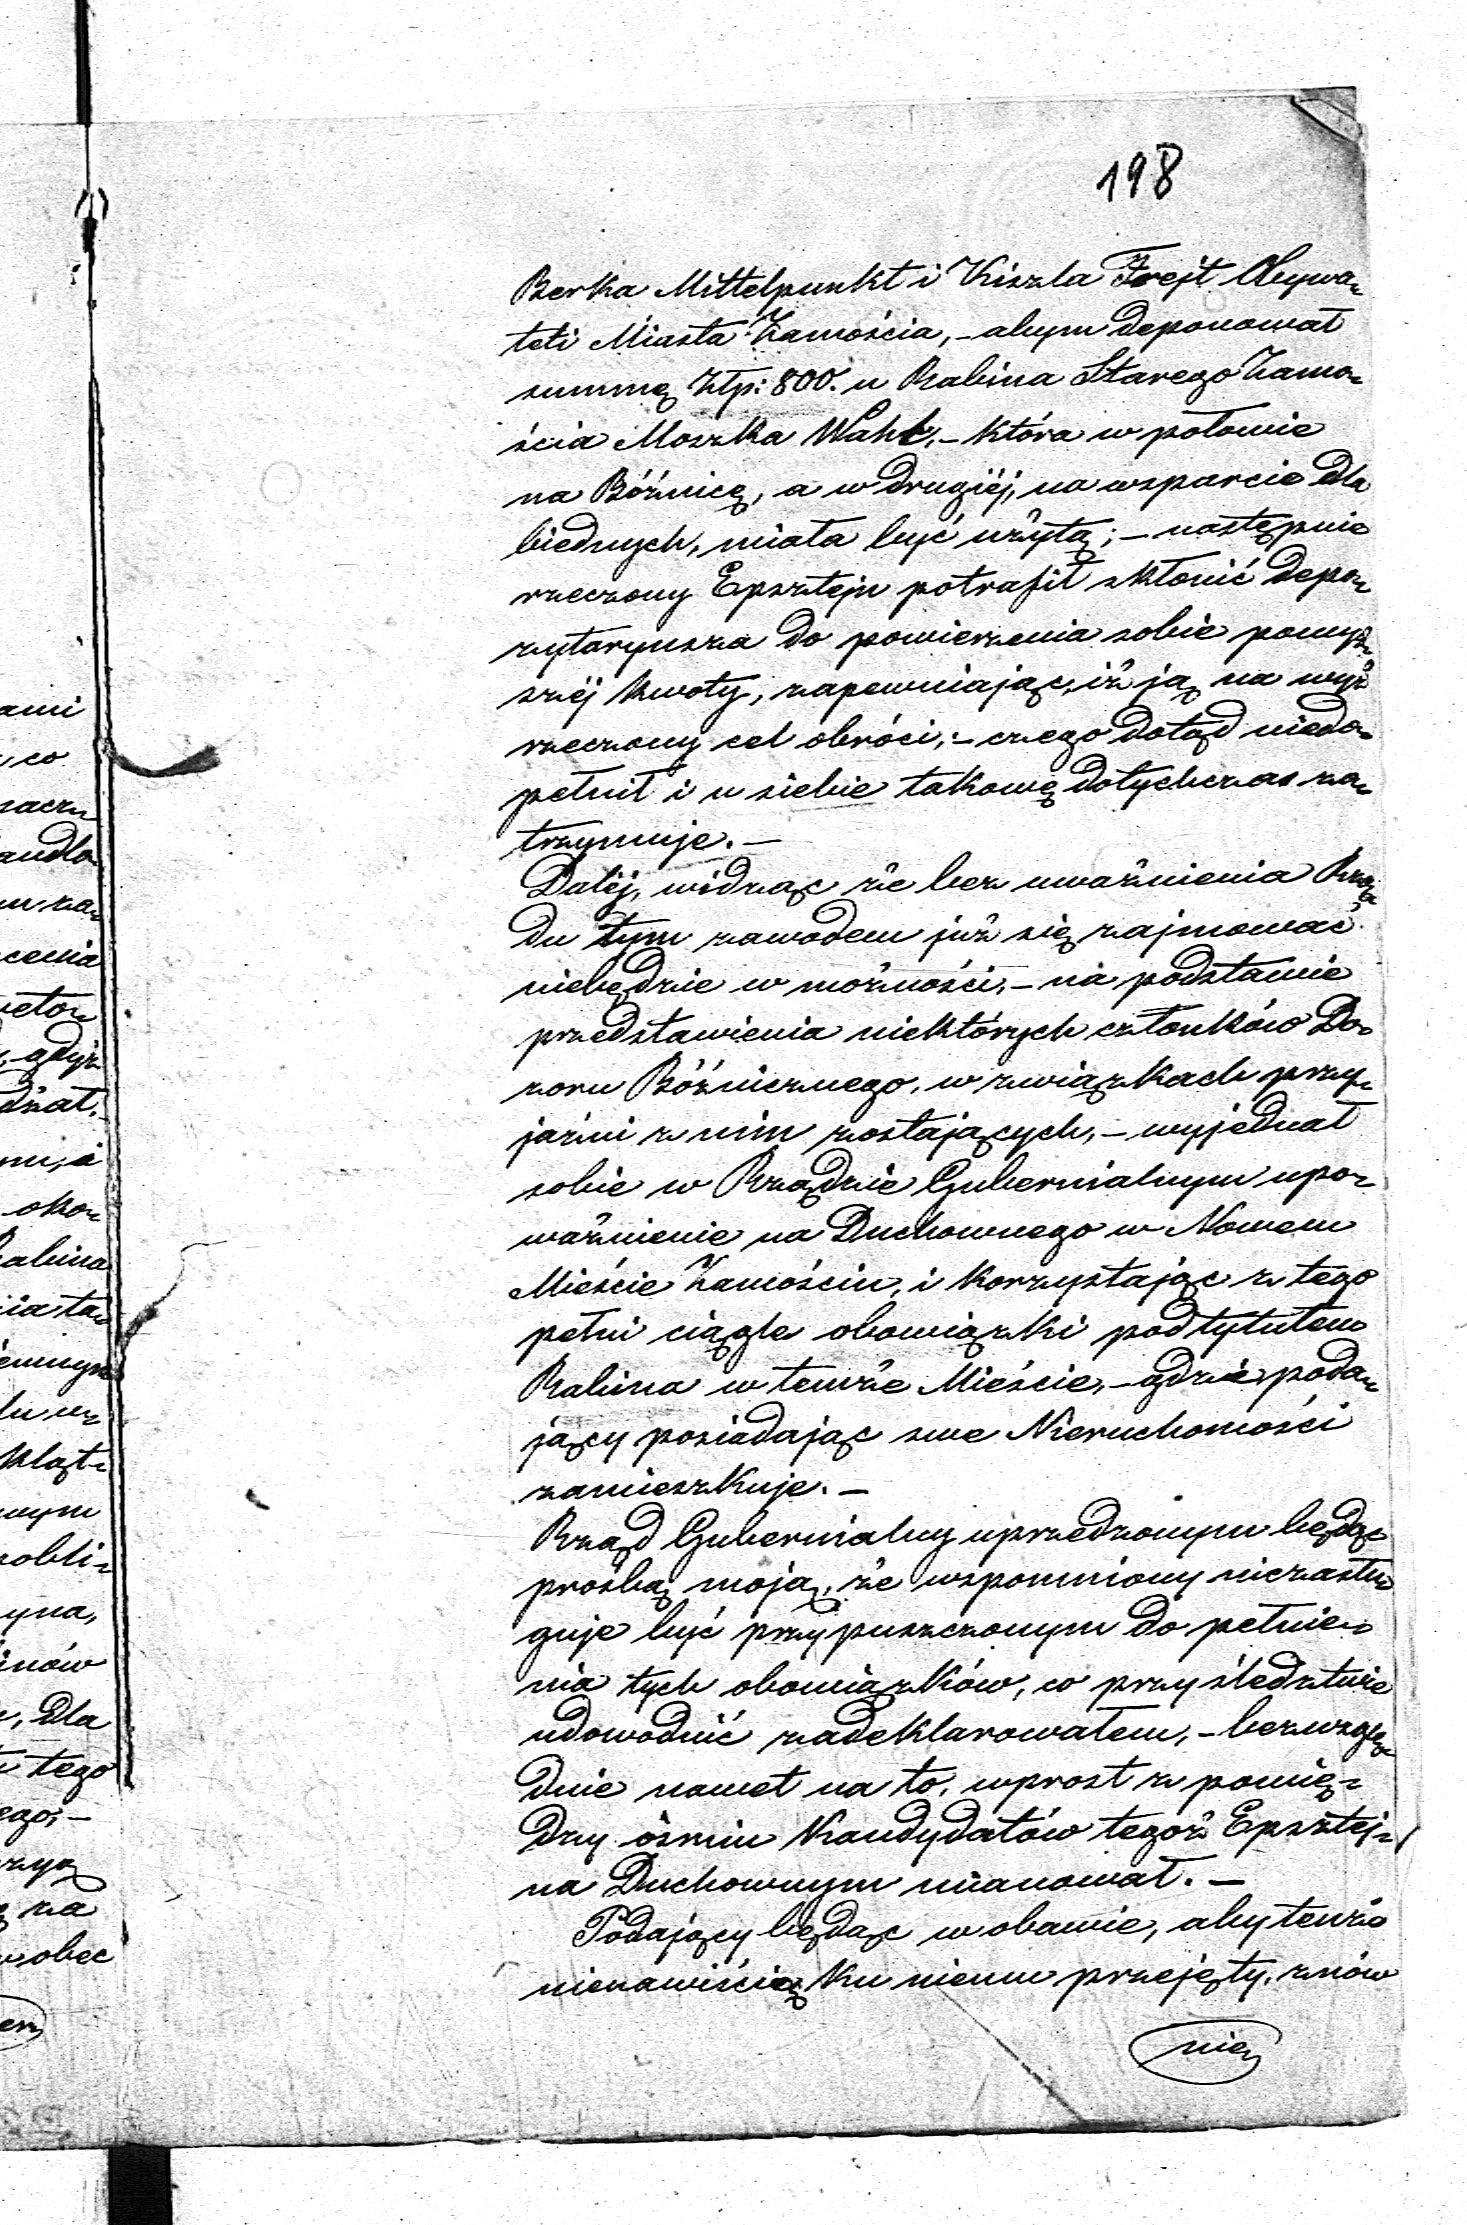 198
Berka Mittelpunkt i Kiszla Frejt Obywa=
teli Miasta Zamościa, – abym deponował
summę Złp: 800. u Rabina Starego Zamo=
ścia Moszka Wahl, – która w połowie
na Bóźnicę, a w drugiéj, na wsparcie dla
biednych, miała być użytą; – następnie
rzeczony Epsztejn potrafił skłonić depo=
zytaryusza do powierzenia sobie powyż=
széj kwoty, zapewniając, iż ją na wyż
rzeczony cel obróci; – czego dotąd niedo=
pełnił i u siebie takową dotychczas za=
trzymuje. –
Daléj, widząc że bez uważnienia Rzą=
du tym zawodem już się zajmować
niebędzie w możności, – na podstawie
przedstawienia niektórych członków Do=
zoru Bóźnicznego, w związkach przy=
jaźni z nim zostających, – wyjednał
sobie w Rządzie Gubernialnym upo=
ważnienie na Duchownego w Nowem
Mieście Zamościu, i korzystając z tego
pełni ciągle obowiązki pod tytułem
Rabina w temże Mieście, – gdzie poda=
jący posiadając swe Nieruchomości
zamieszkuje. –
Rząd Gubernialny uprzedzonym będąc
prośbą moją, że wspomniony niezasłu=
guje być przypuszczonym do pełnie=
nia tych obowiązków, co przy śledztwie
udowodnić zadeklarowałem, – bezwzglę=
dnie nawet na to, wprost z pomię=
dzy ośmiu Kandydatów tegoż Epsztej=
na Duchownym mianował. –
Podający będąc w obawie, aby tenże
nienawiścią ku niemu przejęty, znów
nie=
ami
co
handlo=
cenia
gdyż
mi, a
oko=
Rabina
nia ta=
kląt=
obli=
yna,
inów
dla
tego
ego, –
za
wobec